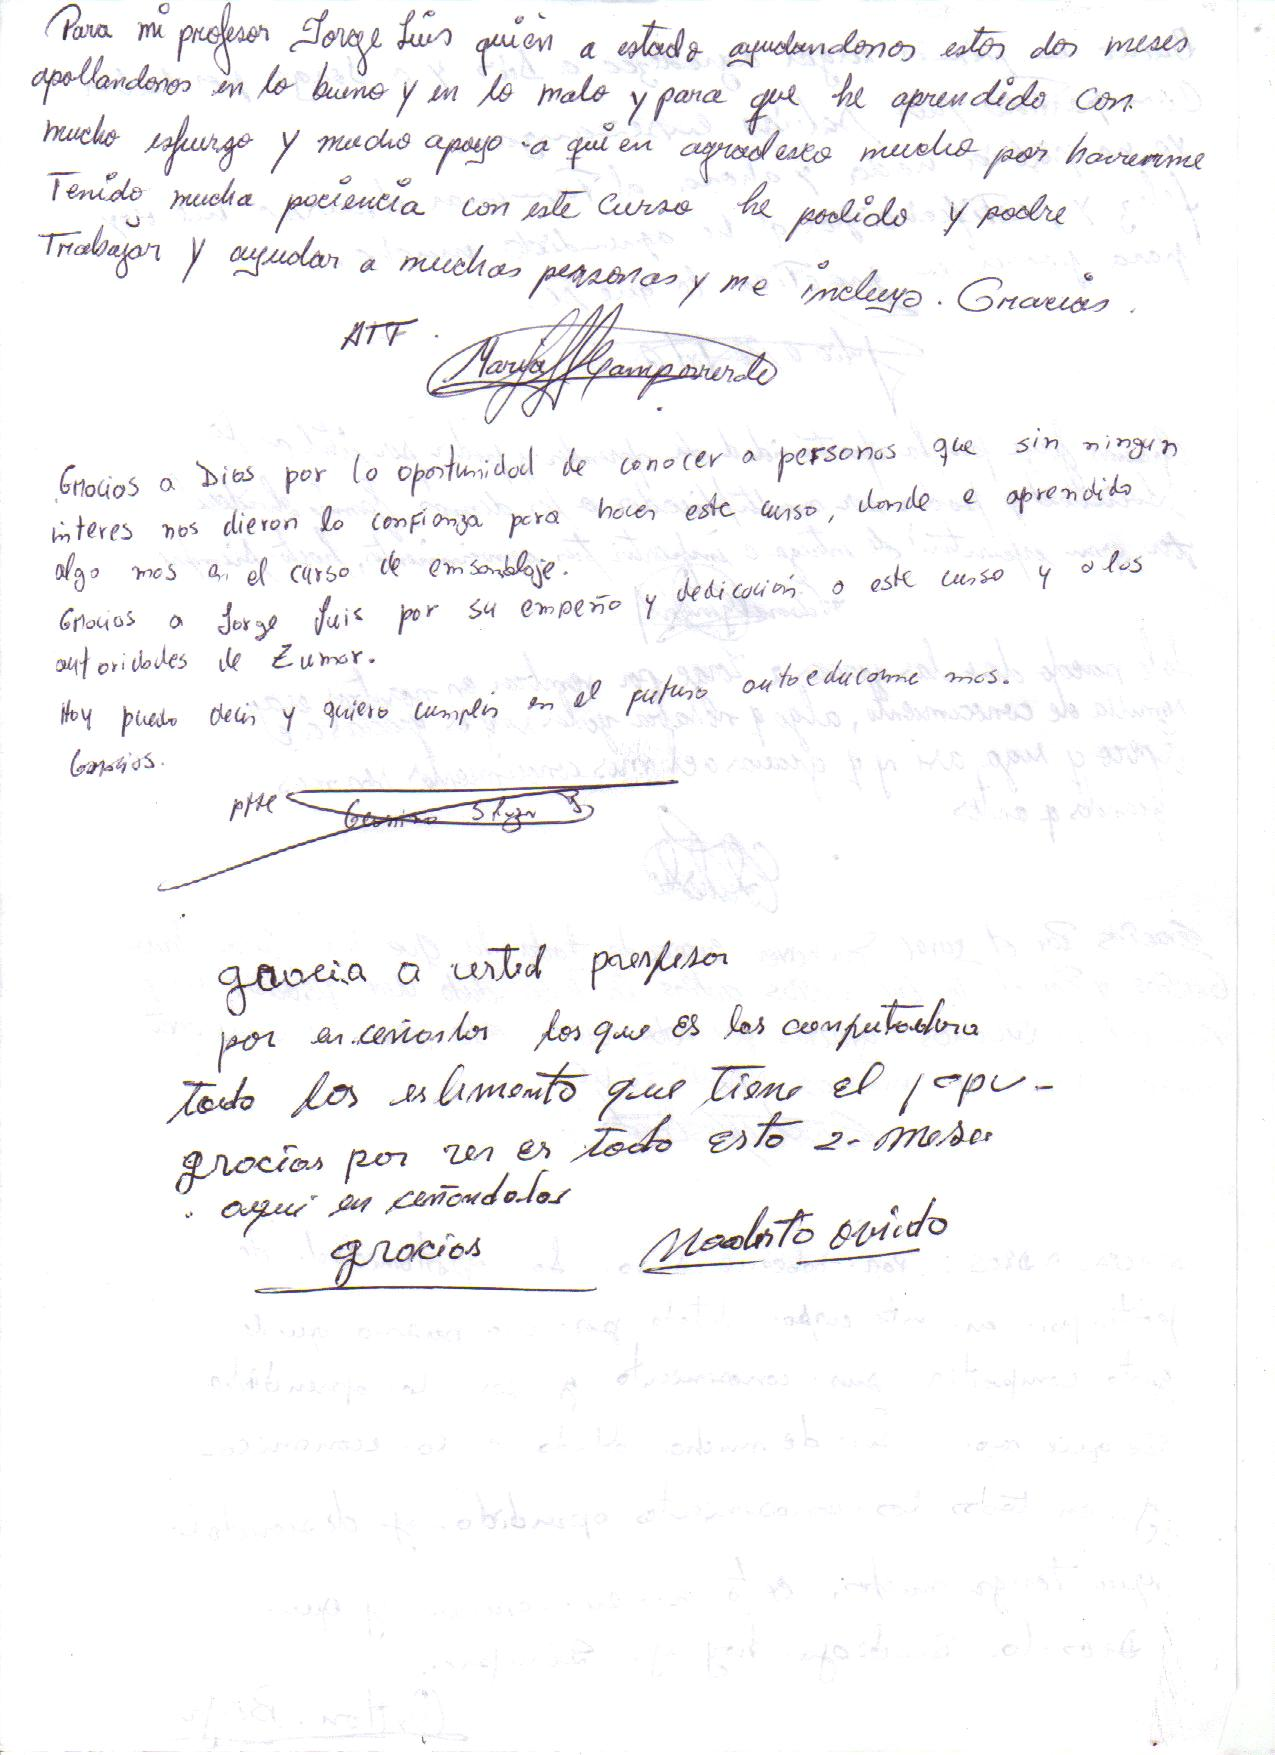 Para mi profesor Jorge Luis quien a estado ayudandonos estos dos meses
apollandonos en lo bueno y en lo malo y para que he aprendido con
mucho esfurzo y mucho apoyo a quien agradesco mucho por haverme
Tenido mucha paciencia con este curso he podido y podre
Trabajar y ayudar a muchas personas y me incluyo. Gracias.
ATT.
Maria
Gracias a Dios por la oportunidad de conocer a personas que sin ningun
interes nos dieron la confianza para hacer este curso, donde e aprendido
algo mas en el curso de emsanblaje.
Gracias a Jorge Luis por su empeño y dedicación a este curso y a las
autoridades de Zumar.
Hoy puedo decir y quiero cumplir en el futuro autoeducarme mas.
Gracias.
gracia a usted presfesor
por en ceñarlos los que es las computadora
todo los eslemento que tiene el
gracias por todo esto 2- mese
aqui en ceñandolos
gracias
Oviedo